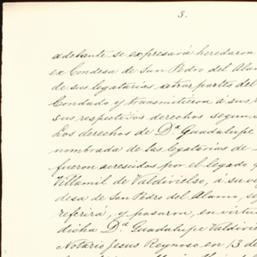 3.
adelante se expresará heredaron
ex Condesa de San Pedro del Alam
de sus legatarios otras partes del
Condado y transmitieron á sus r
sus respectivos derechos segun
Los derechos de Dª Guadalupe
nombrada de las legatarias de
fueron acrecidos por el legado q
Villamil de Valdivielso, á su vez
desa de San Pedro del Alamo, se
referirá, y pasaron, en virtu
dicha Dª Guadalupe Valdivi
Notario Jesus Reynoso en 13 de